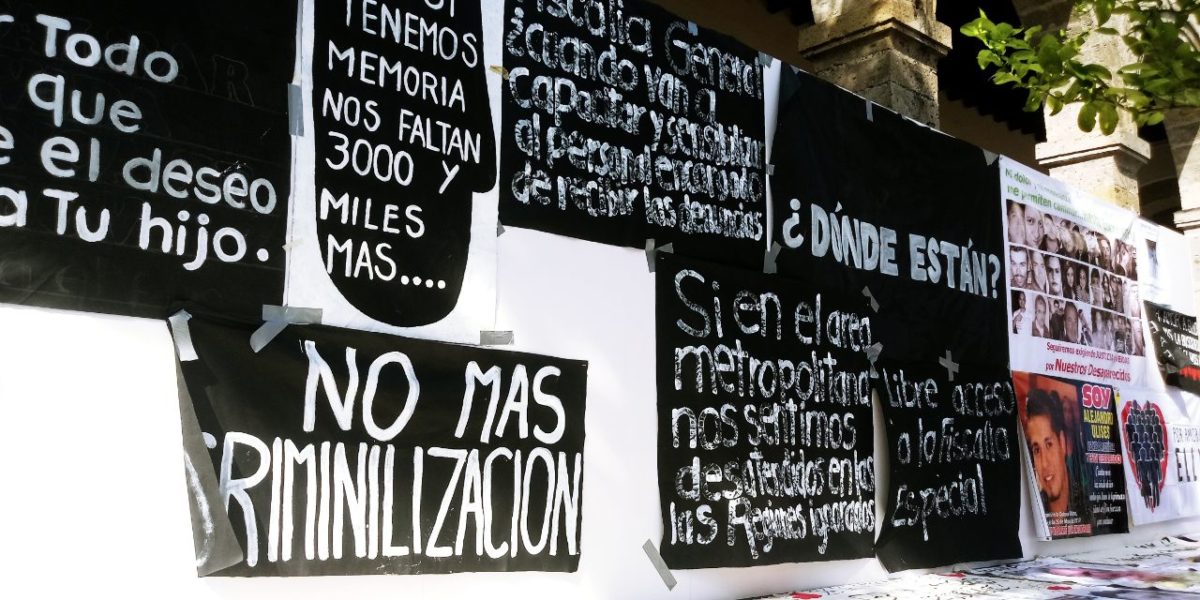 Todo
que
el deseo
Tu hijo.
TENEMOS
MEMORIA
NOS FALTAN
3000 Y
MILES
MAS....
Fiscalia General
¿cuando van a
capacitar y sensibilizar
al personal encargado
de recibir las denuncias
¿DÓNDE ESTÁN?
NO MAS
CRIMINILIZACION
Si en el area
metropolitana
nos sentimos
desatendidos en las
las Regiones ignorados
Libre acceso
a la fiscalia
Especial
Ni dolor
me permiten
Seguiremos exigiendo JUSTICIA y VERDAD
por Nuestros Desaparecidos
SOY
ALEJANDRO
ULISES
POR AMOR